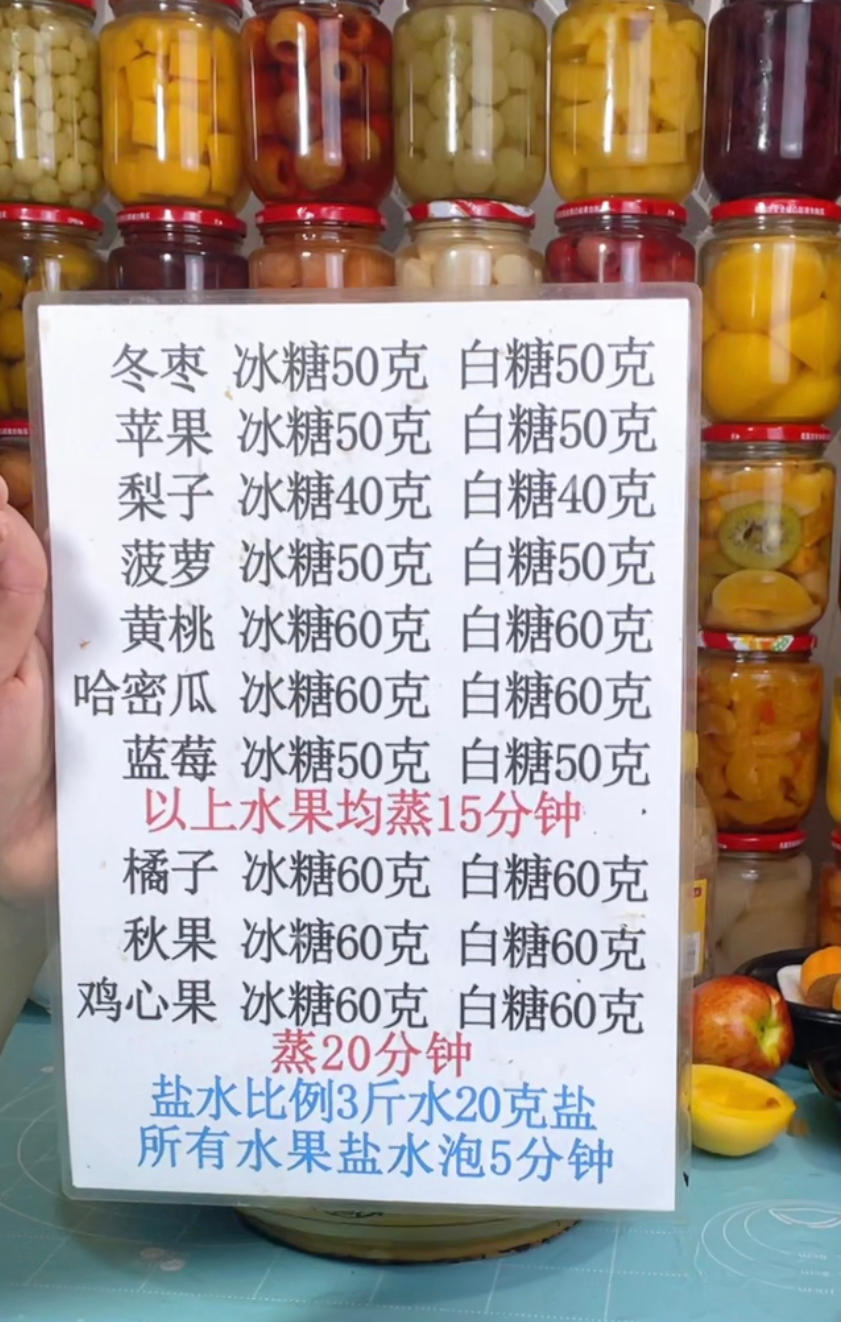 冬枣 冰糖50克 白糖50克
苹果 冰糖50克 白糖50克
梨子 冰糖40克 白糖40克
菠萝 冰糖50克 白糖50克
黄桃 冰糖60克 白糖60克
哈密瓜 冰糖60克 白糖60克
蓝莓 冰糖50克 白糖50克
以上水果均蒸15分钟
橘子 冰糖60克 白糖60克
秋果 冰糖60克 白糖60克
鸡心果 冰糖60克 白糖60克
蒸20分钟
盐水比例3斤水20克盐
所有水果盐水泡5分钟